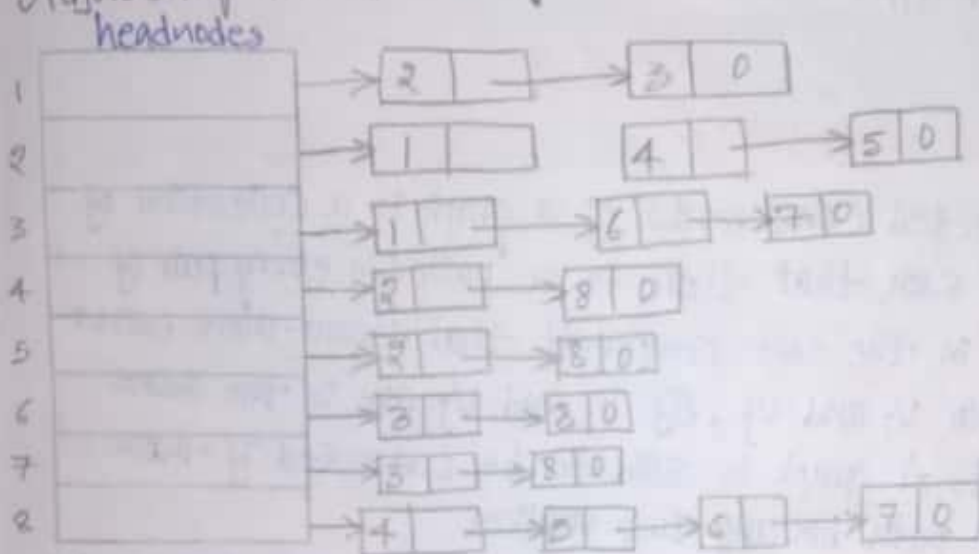 headnodes
1 2 3 0
2 1 4 5 0
3 1 6 7 0
4 2 8 0
5 2 8 0
6 3 8 0
7 3 8 0
8 4 5 6 7 0